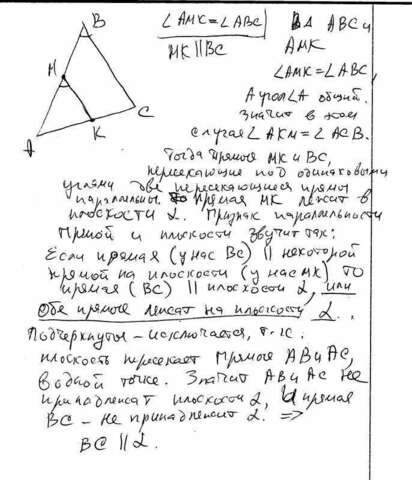 B
∠AMK = ∠ABC
MK ∥ BC
В Δ ABC и
AMK
∠AMK = ∠ABC,
А угол ∠A общий.
Значит в этом
случае ∠AKM = ∠ACB.
M
C
K
A
Тогда прямые MK и BC,
пересекающие под одинаковыми
углами две пересекающиеся прямы
параллельны. Прямая MK лежит в
плоскости α. Признак параллельности
прямой и плоскости звучит так:
Если прямая (у нас BC) ∥ некоторой
прямой на плоскости (у нас MK) то
прямая (BC) ∥ плоскости α, или
обе прямые лежат на плоскости α.
Подчеркнутое – исключается, т.к.
плоскость пересекает прямые AB и AC,
в одной точке. Значит AB и AC не
принадлежат плоскости α, и прямая
BC – не принадлежит α. ⇒
BC ∥ α.